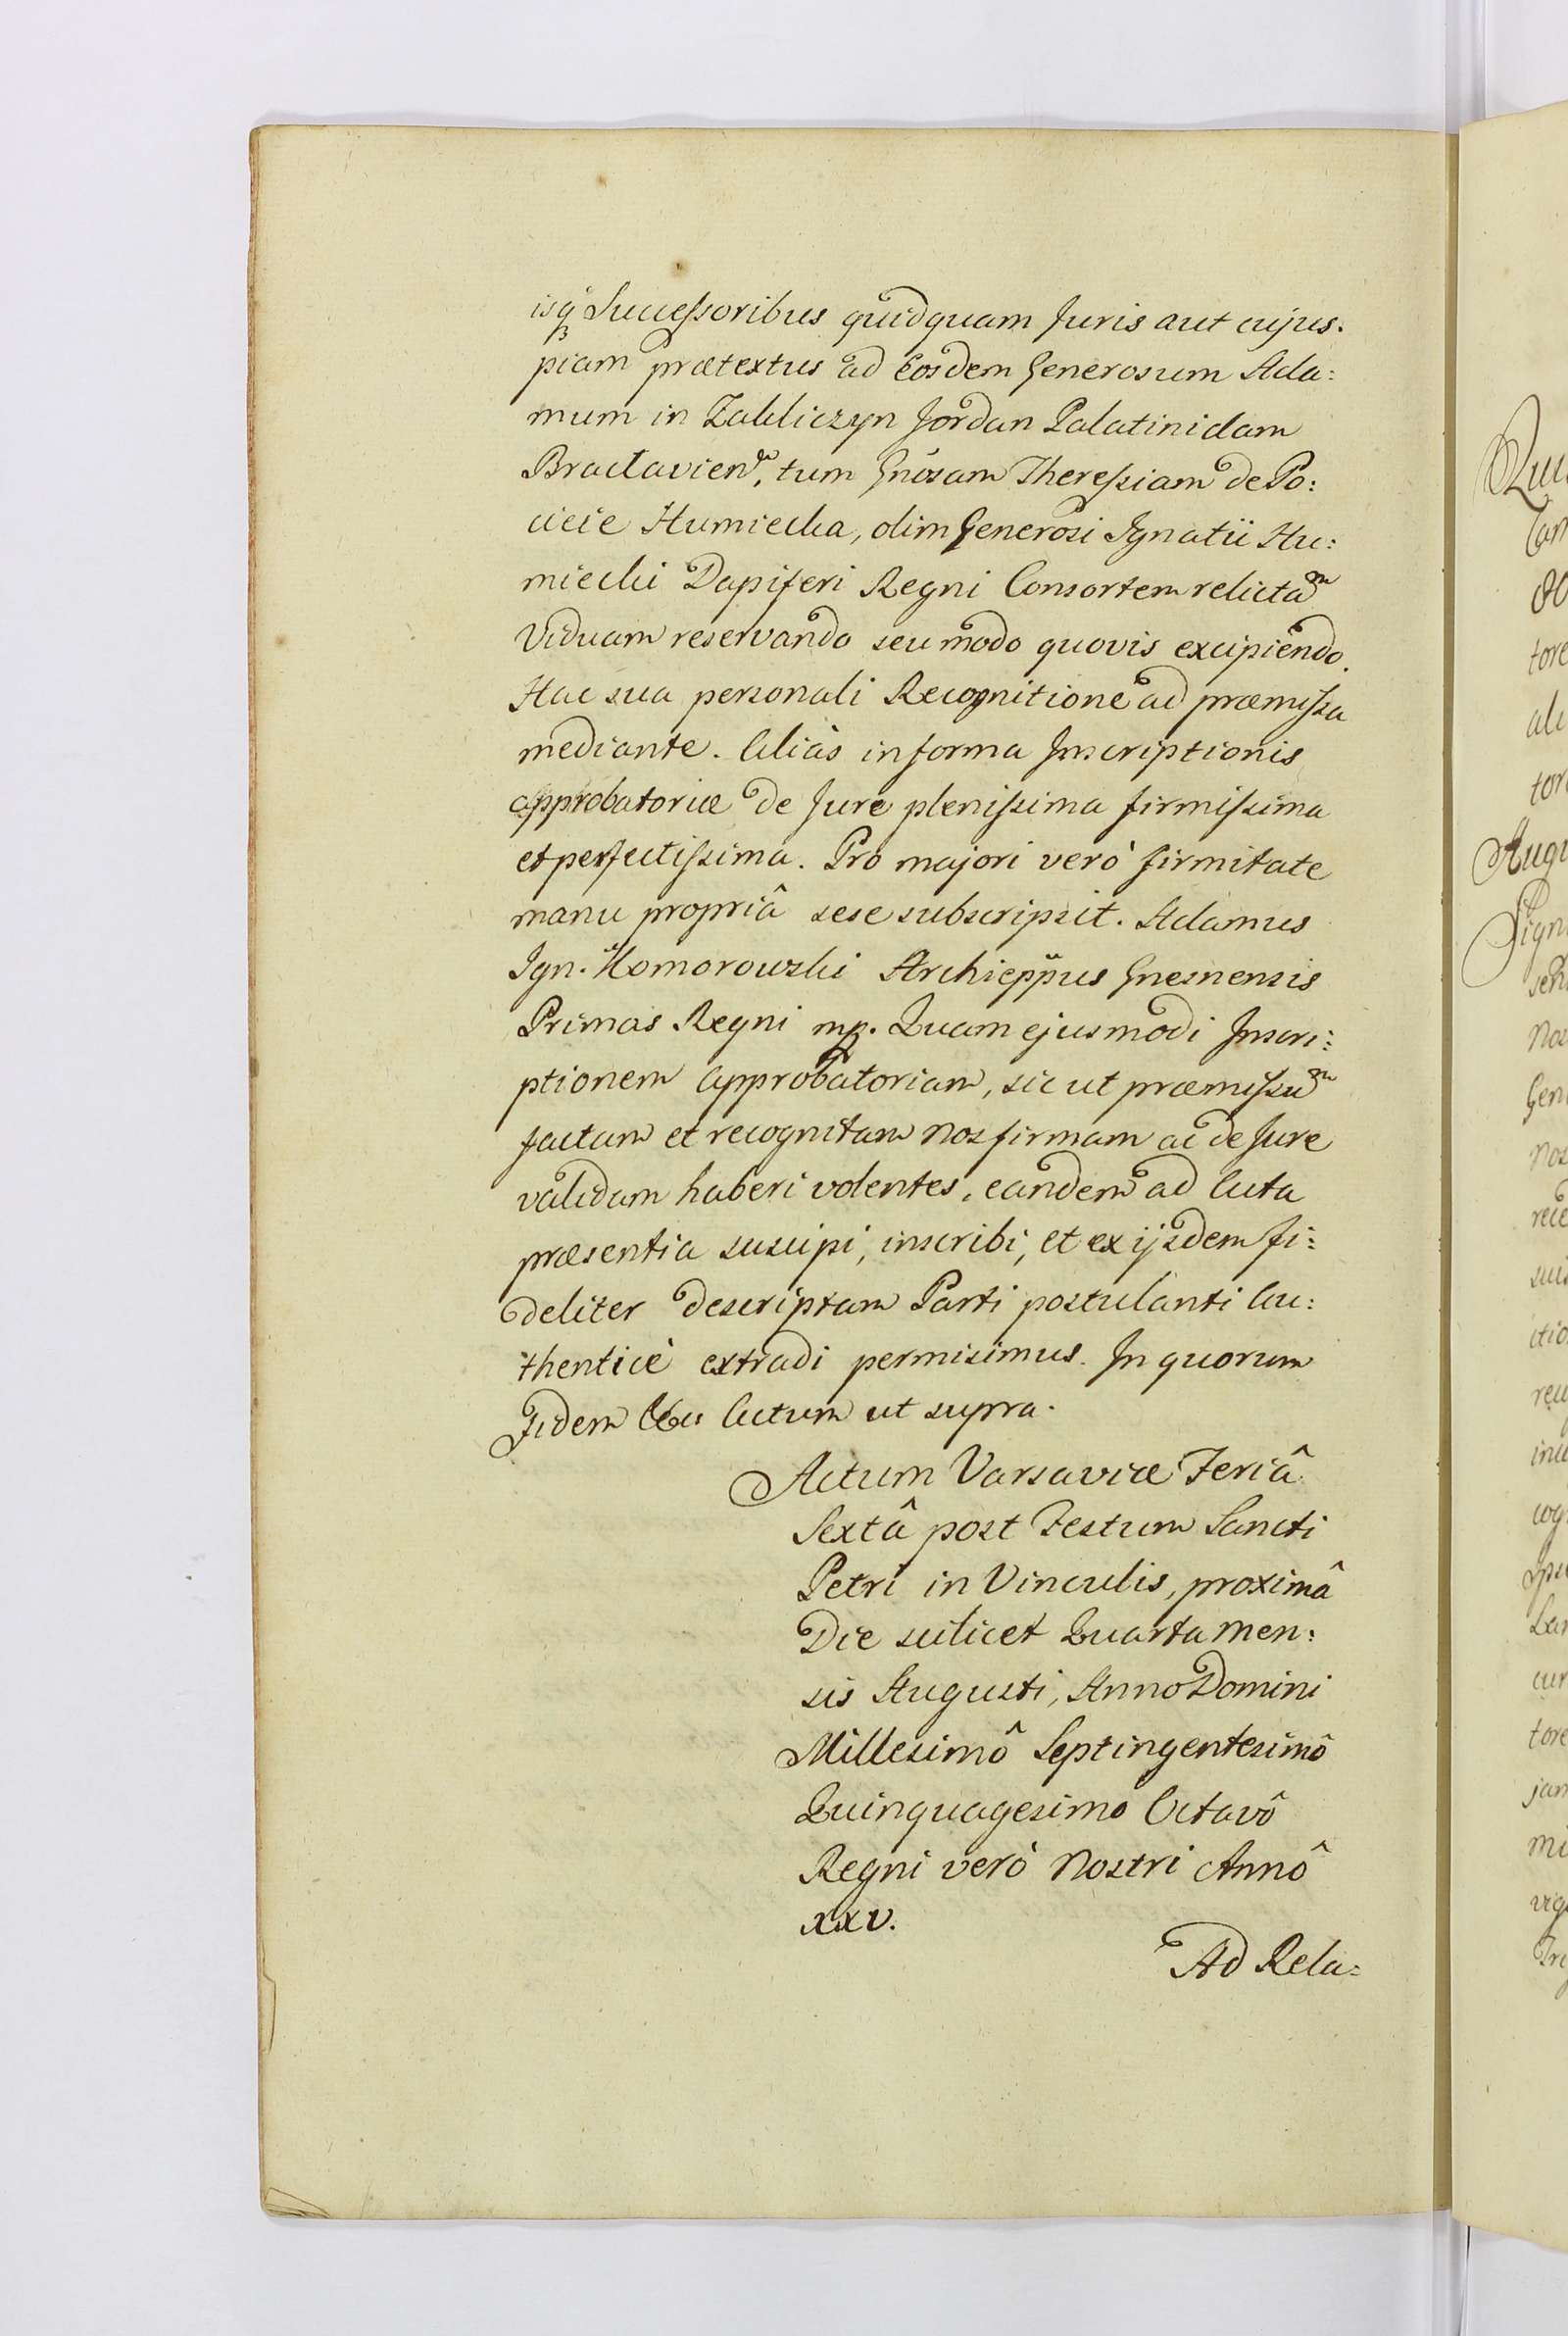 isq́ꝫ Successoribus quidquam Juris aut cujus.
piam prætextus ad Eosdem Generosum Ada:
mum in Zakliczyn Jordan Palatinidam
Braclavien., tum Gnosam Theressiam de Po:
cieie Humiecka, olim Generosi Ignatii Hu:
miecki Dapiferi Regni Consortem relictam
Viduam reservando seu modo quovis excipiendo.
Hac sua personali Recognitione ad præmissa
mediante. Aliàs in forma Inscriptionis
approbatoriæ de Jure plenissima firmissima
et perfectissima. Pro majori verò firmitate
manu propriâ sese subscripsit. Adamus
Ign. Komorowski Archieppus Gnesnensis
Primas Regni mp. Quam ejusmodi Inscri:
ptionem Approbatoriam, sic ut præmissum
factam et recognitam Nos firmam ac de Jure
validam haberi volentes, eandem ad Acta
præsentia suscipi, inscribi, et ex ijsdem fi:
deliter descriptam Parti postulanti Au:
thenticè extradi permisimus. In quorum
Fidem Actum ut supra.
Actum Varsaviæ Feriâ
Sextâ post Festum Sancti
Petri in Vinculis, proximâ
Die scilicet Quarta Men:
sis Augusti, Anno Domini
Millesimô Septingentesimô
Quinquagesimo Octavô
Regni verò Nostri Annô
XXV.
Ad Rela=